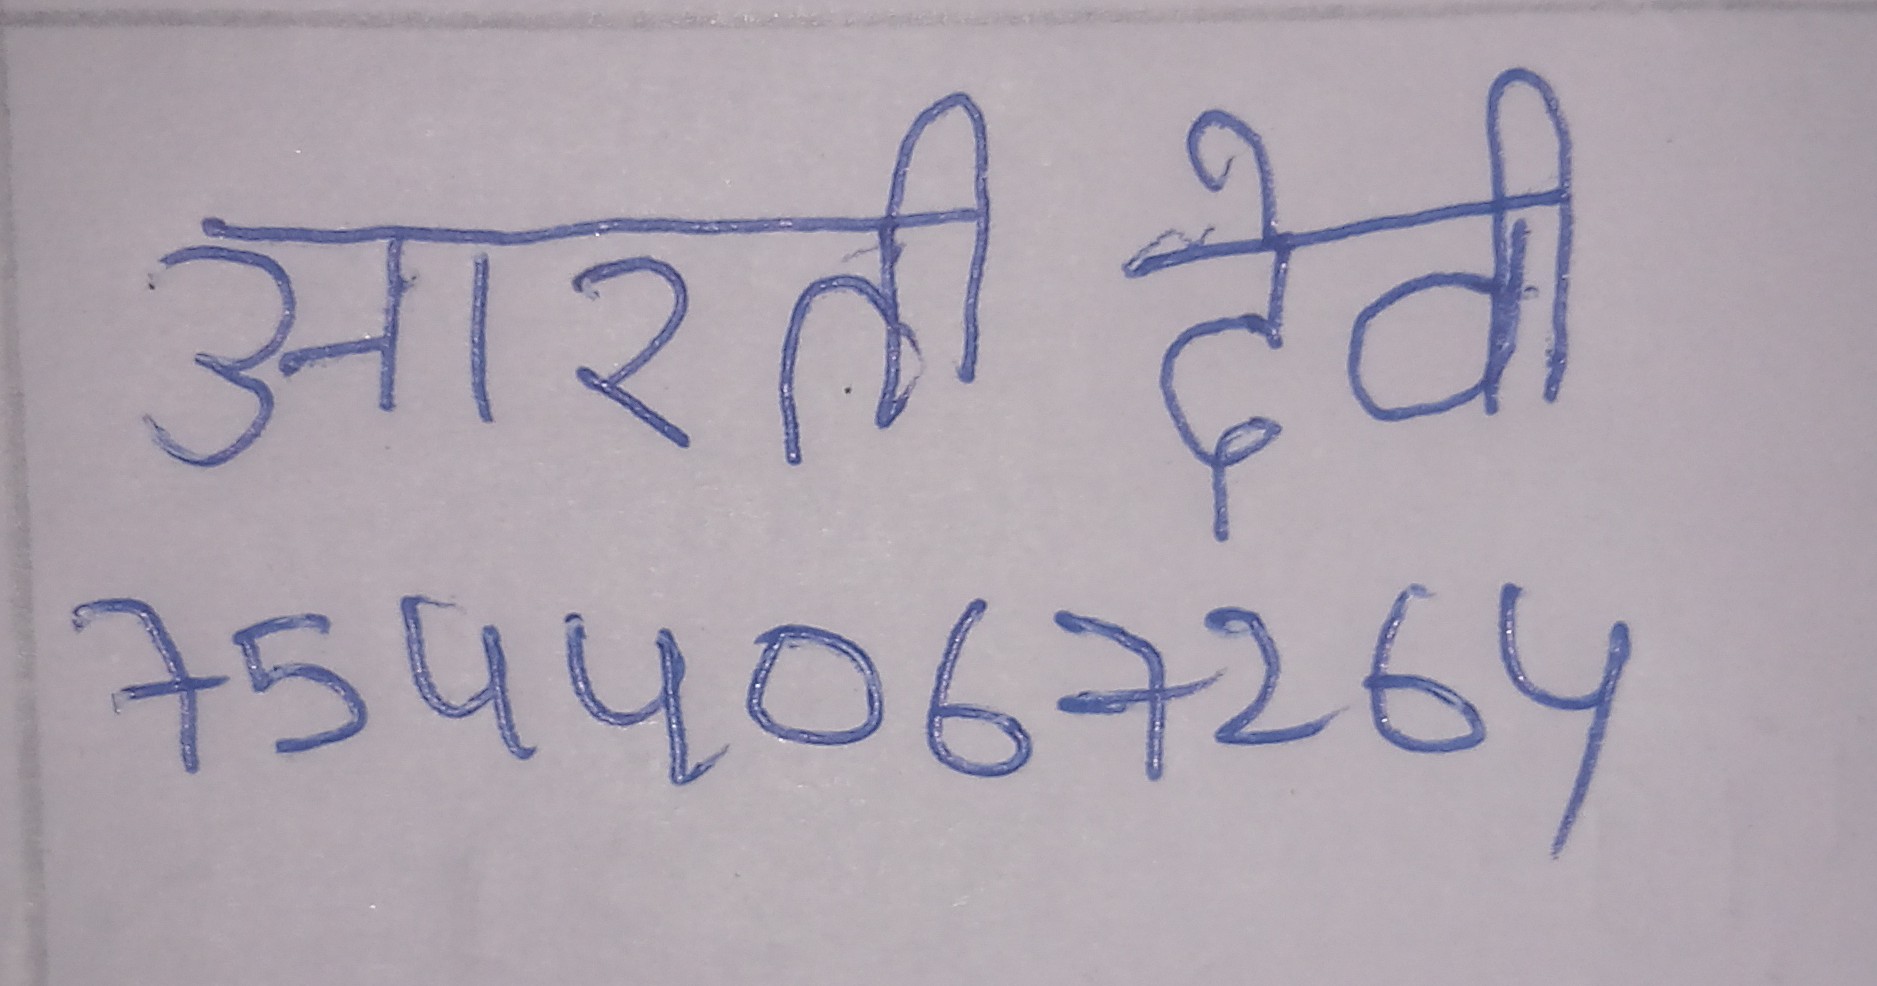 आरती देवी
7544067264